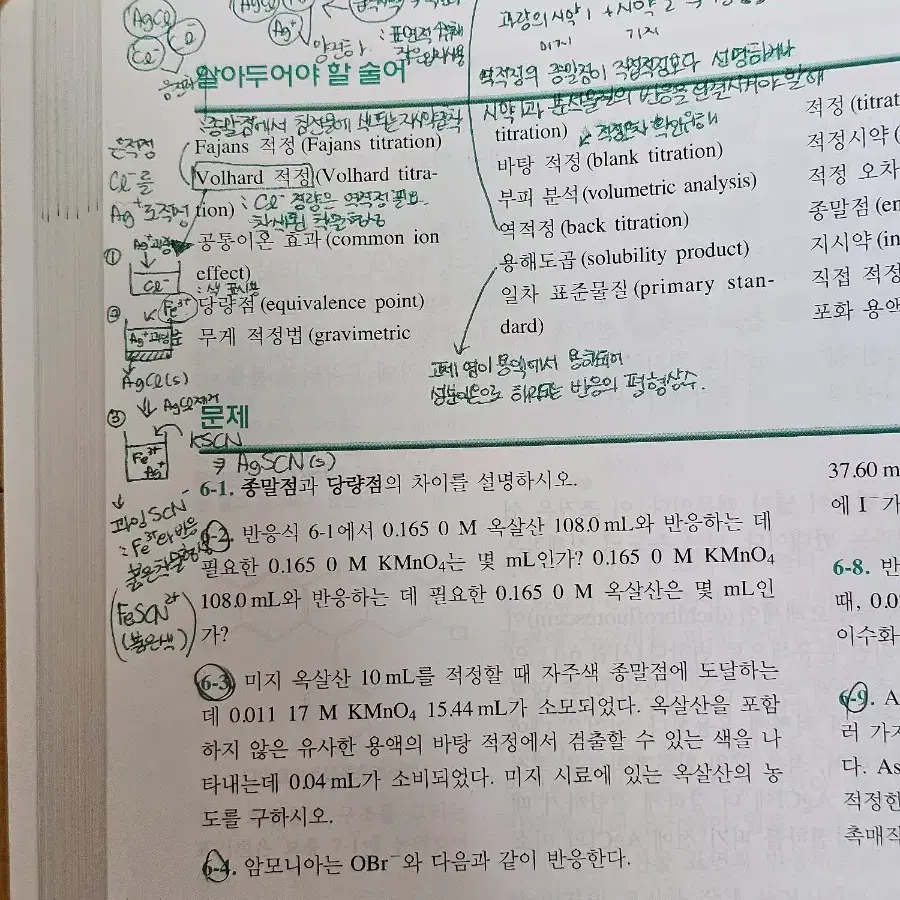 AgCl
Cl⁻
Ag⁺
양전하
: 표면적
과량의 시약 1 + 시약 2
미지 기지
역적정의 종말점이 직접적정보다 선명하거나
시약과 분석물질의 반응을 완결시켜야 할 때
알아두어야 할 술어
: 종말점에서 침전물에
Fajans 적정 (Fajans titration)
Volhard 적정 (Volhard titra-
tion) : Cl⁻ 정량은 역적정 필요.
공통이온 효과 (common ion
effect)
당량점 (equivalence point)
무게 적정법 (gravimetric
titration)
바탕 적정 (blank titration)
부피 분석 (volumetric analysis)
역적정 (back titration)
용해도곱 (solubility product)
일차 표준물질 (primary stan-
dard)
고체 염이 용액에서 용해되어
성분이온으로 해리되는 반응의 평형상수.
적정 (titrat
적정시약 (
적정 오차
종말점 (en
지시약 (in
직접 적정
포화 용액
은적정
Cl⁻를
Ag⁺로 적정
①
Ag⁺과량
Cl⁻
②
Fe³⁺
AgCl(s)
AgCl 제거
③
KSCN
Fe³⁺
Ag⁺
⇒ AgSCN(s)
과잉 SCN⁻
: Fe³⁺와 반응
FeSCN²⁺
(붉은색)
문제
6-1. 종말점과 당량점의 차이를 설명하시오.
6-2. 반응식 6-1에서 0.165 0 M 옥살산 108.0 mL와 반응하는 데
필요한 0.165 0 M KMnO₄는 몇 mL인가? 0.165 0 M KMnO₄
108.0 mL와 반응하는 데 필요한 0.165 0 M 옥살산은 몇 mL인
가?
6-3. 미지 옥살산 10 mL를 적정할 때 자주색 종말점에 도달하는
데 0.011 17 M KMnO₄ 15.44 mL가 소모되었다. 옥살산을 포함
하지 않은 유사한 용액의 바탕 적정에서 검출할 수 있는 색을 나
타내는데 0.04 mL가 소비되었다. 미지 시료에 있는 옥살산의 농
도를 구하시오.
6-4. 암모니아는 OBr⁻와 다음과 같이 반응한다.
37.60 m
에 I⁻가
6-8. 반
때, 0.0
이수화
6-9. A
러 가지
다. As
적정한
촉매작